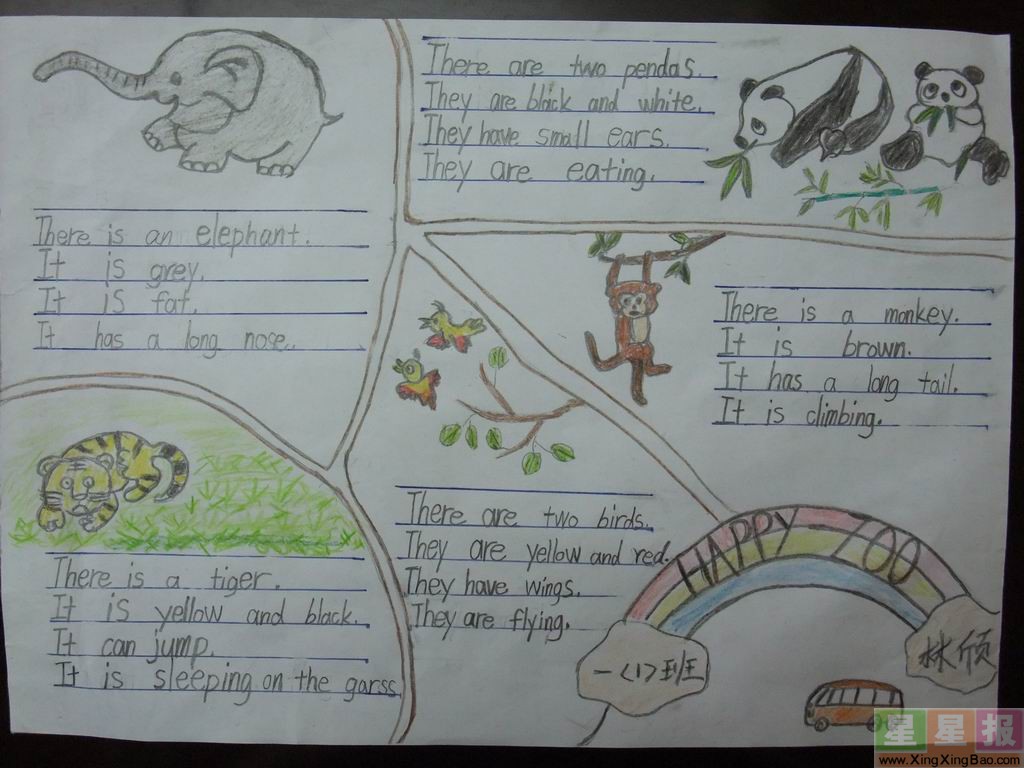 There is an elephant.
It is grey.
It is fat.
It has a long nose.
There are two pendas.
They are black and white.
They have small ears.
They are eating.
There is a monkey.
It is brown.
It has a long tail.
It is climbing.
There is a tiger.
It is yellow and black.
It can jump.
It is sleeping on the garss
There are two birds.
They are yellow and red.
They have wings.
They are flying.
HAPPY ZOO
一〈1〉班
林颀
星星报
www.XingXingBao.com